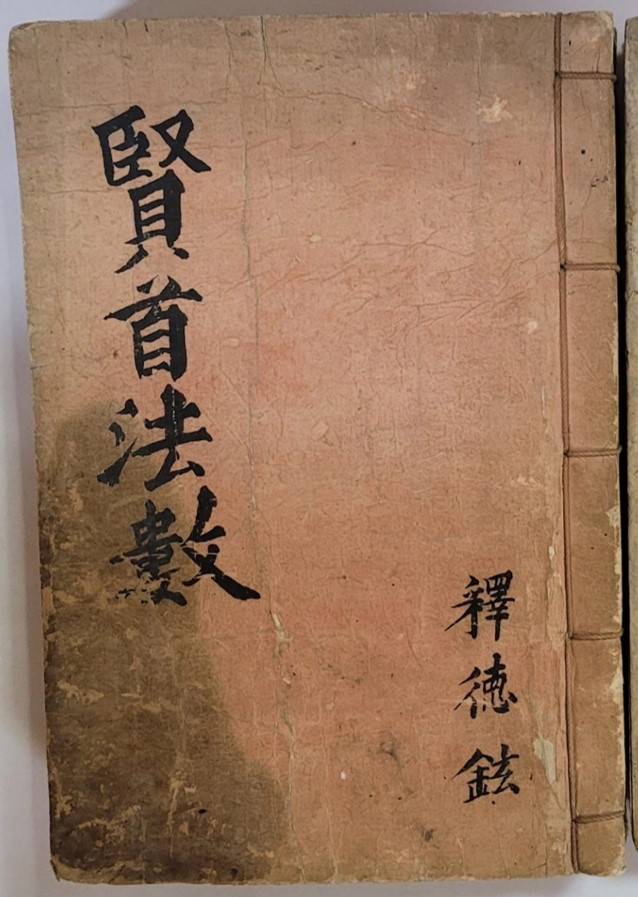 賢首法數
釋徳鉉